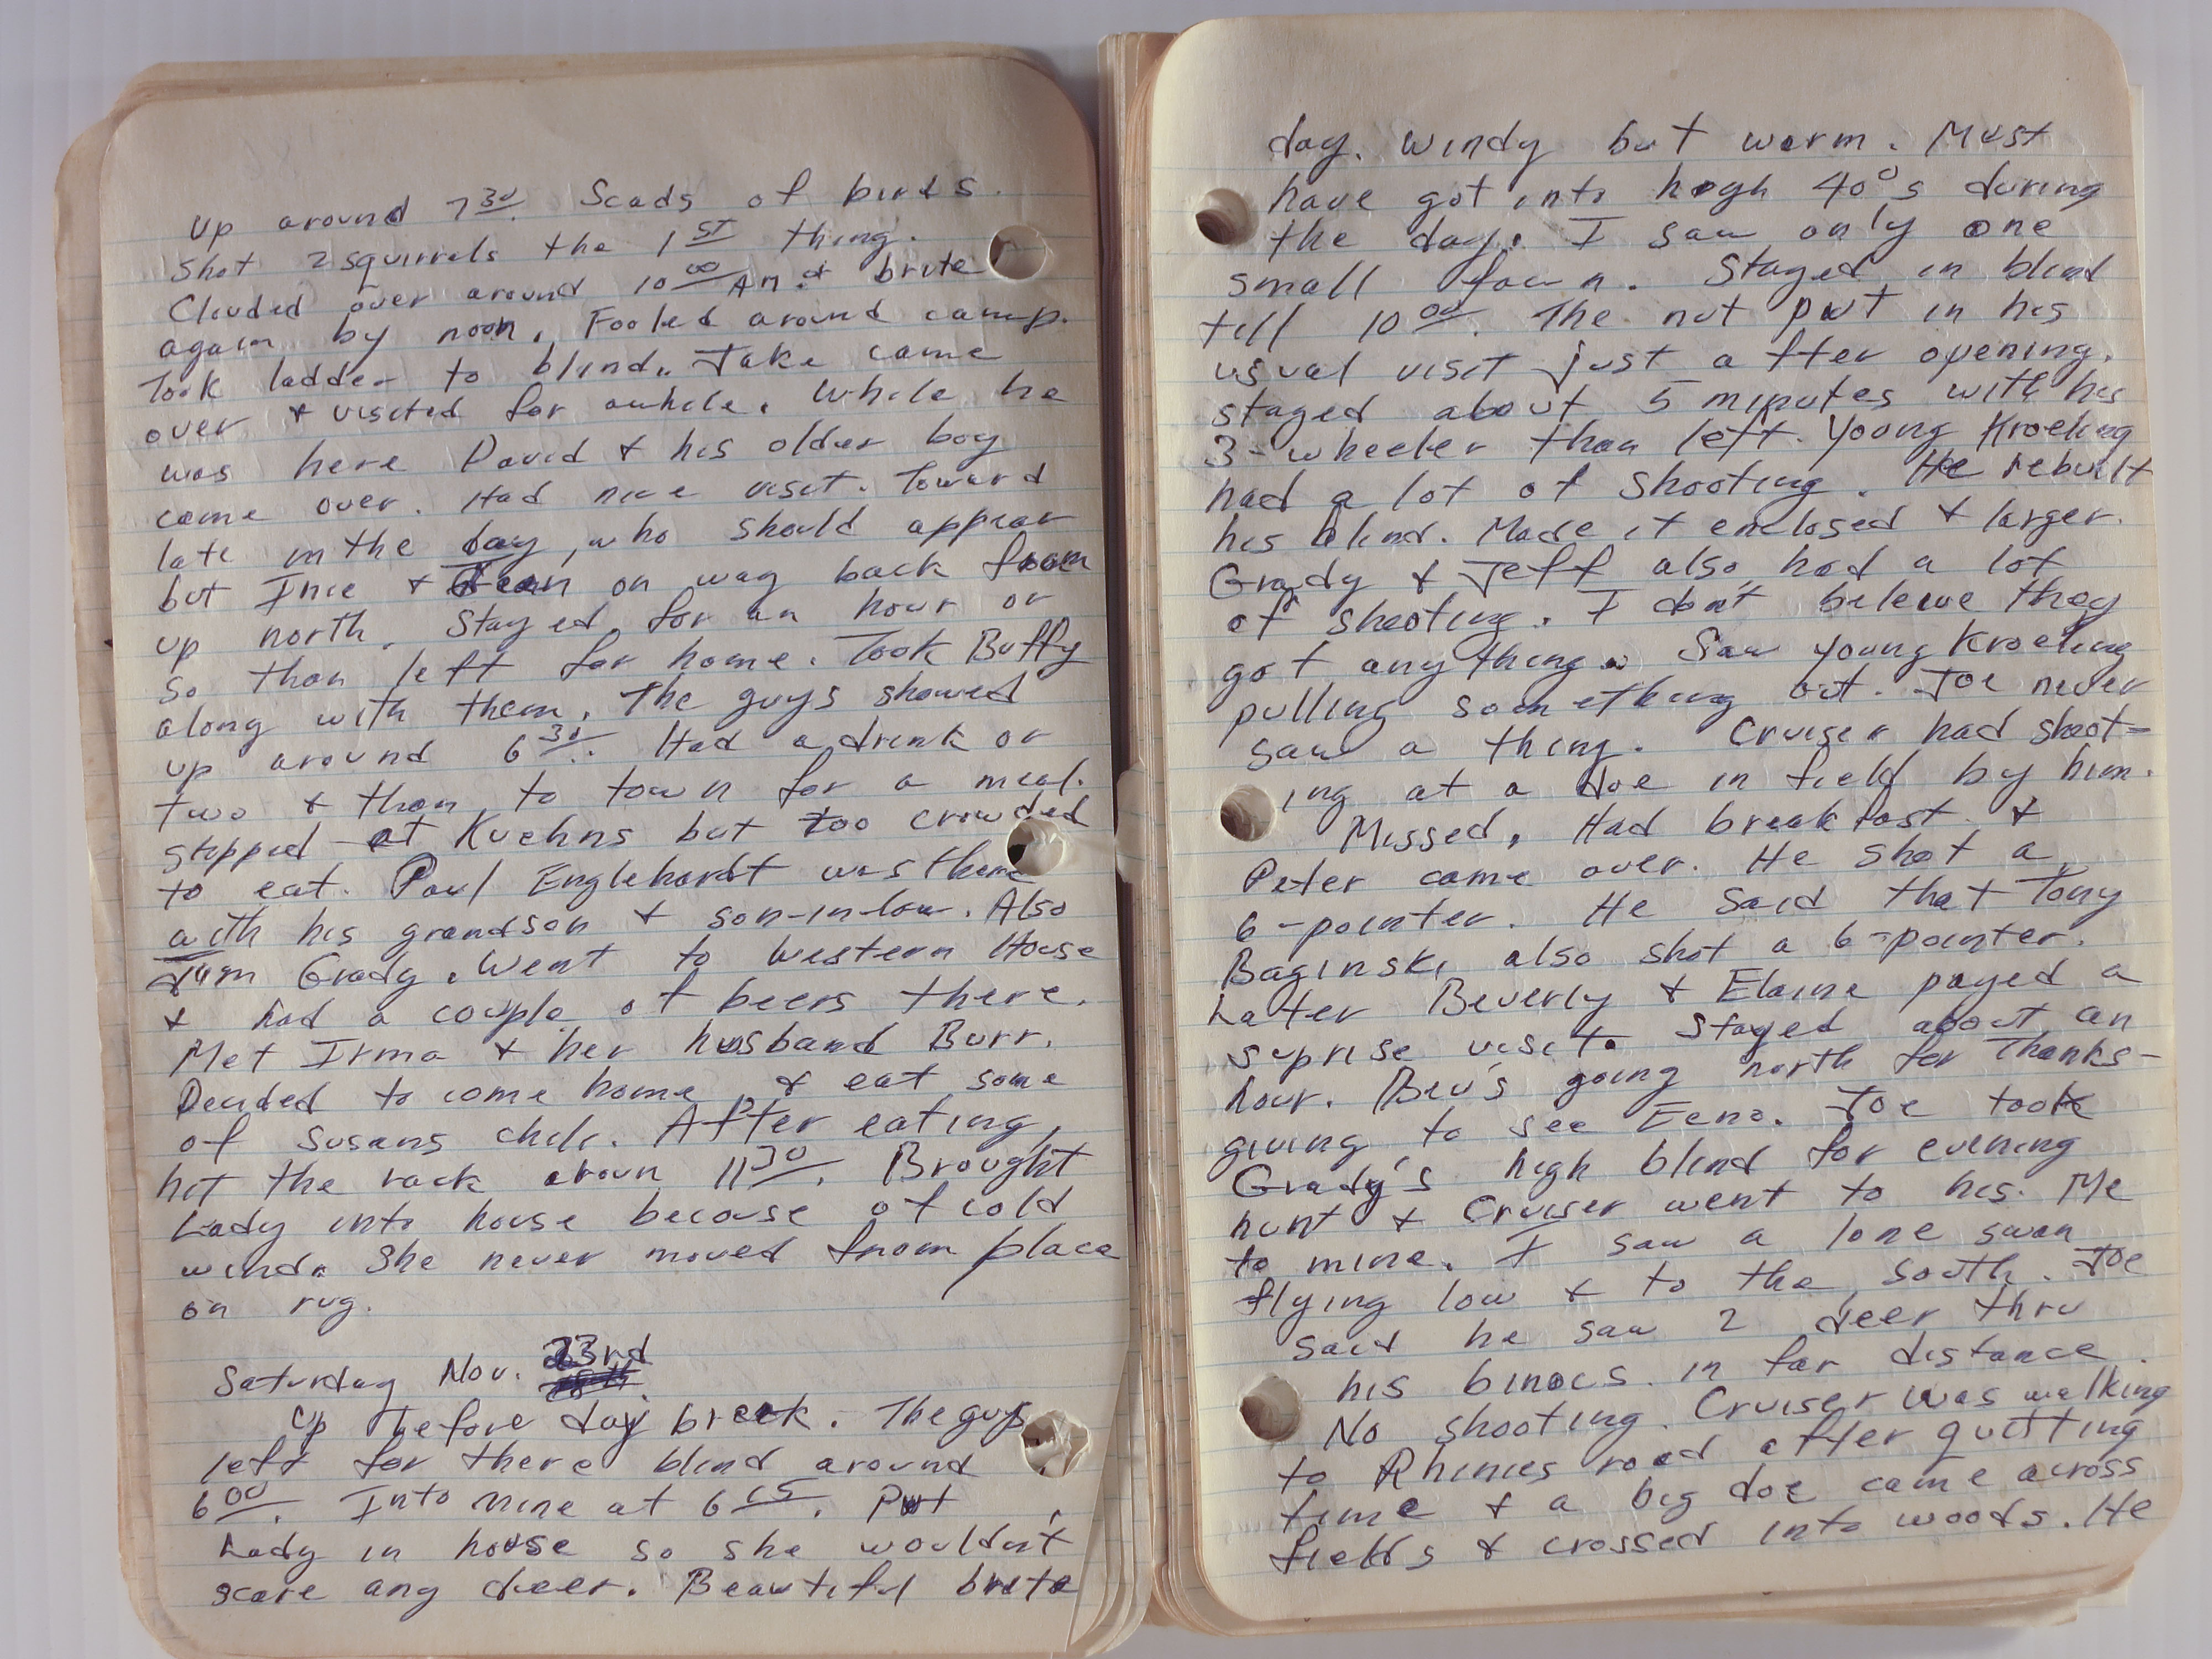 Up around 7 30. Scads of birds.
Shot 2 squirrels the 1 ST thing.
Clouded over around 10 00 AM & brite
again by noon. Fooled around camp.
Took ladder to blind. Jake came
over & visited for awhile. While he
was here David & his older boy
came over. Had nice visit. Toward
late in the day, who should appear
but Inie & on way back from
up north. Stayed for an hour or
so than left for home. Took Buffy
along with them. The guys showed
up around 6 30. Had a drink or
two & than to town for a meal.
Stopped at Kuehns but too crowded
to eat. Paul Englehardt was there
with his grandson & son-in-law. Also
Jum Grady. Went to Western House
& had a couple of beers there.
Met Irma & her husband Burr.
Decided to come home & eat some
of Susans chili. After eating,
hit the rack aroun 11 30. Brought
Lady into house because of cold
wind. She never moved from place
on rug.
Saturday Nov. 23rd
Up before day break. The guys
left for there blind around
6 00. Into mine at 6 15. Put
Lady in house so she wouldn't
scare any deer. Beautiful brite
day. Windy but warm. Must
have got into high 40°s during
the day. I saw only one
small fawn. Stayed in blind
till 10 00. The nut put in his
usual visit just after opening.
stayed about 5 minutes with his
3-wheeler than left. Young Kroeling
had a lot of shooting. He rebuilt
his blind. Made it enclosed & larger.
Grady & Jeff also had a lot
of shooting. I don't beleive they
got anything. Saw young Kroeling
pulling something out. Joe never
saw a thing. Cruiser had shoot-
ing at a doe in field by him.
Missed. Had breakfast &
Peter came over. He shot a
6-pointer. He said that Tony
Baginski also shot a 6-pointer.
Later Beverly & Elaine payed a
suprise visit. Stayed about an
hour. Bev's going north for Thanks-
giving to see Eeno. Joe took
Grady's high blind for evening
hunt & Cruiser went to his. Me
to mine. I saw a lone swan
flying low & to the south. Joe
said he saw 2 deer thru
his binocs in far distance.
No shooting. Cruiser was walking
to Rhinies road after quitting
time & a big doe came across
fields & crossed into woods. He